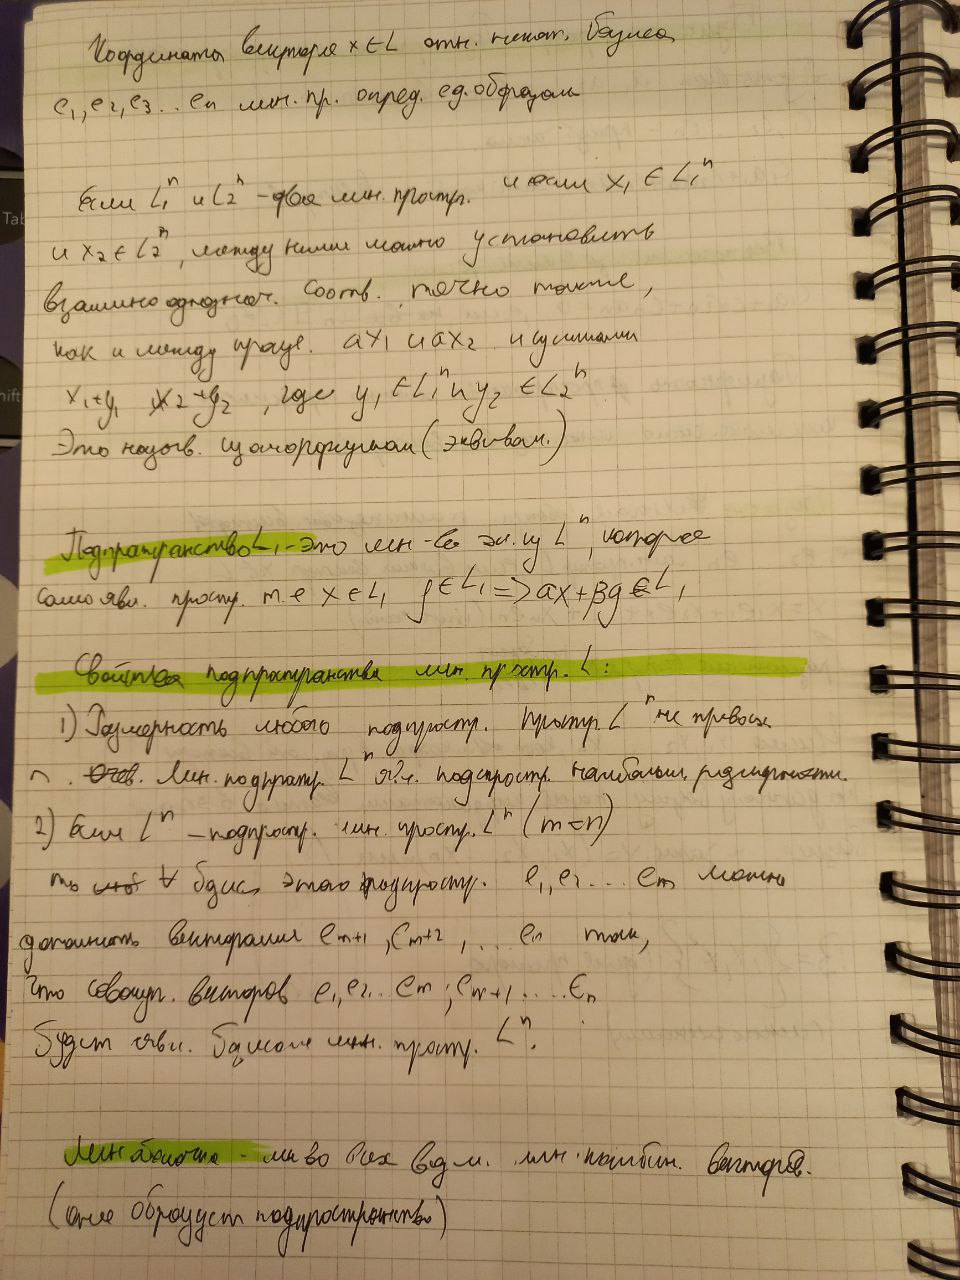 Координаты вектора x ∈ L отн. некот. базиса
e₁, e₂, e₃ .. eₙ лин. пр. опред. ед. образом
Если L₁ⁿ и L₂ⁿ - два лин. простр. и если x₁ ∈ L₁ⁿ
и x₂ ∈ L₂ⁿ, между ними можно установить
взаимно однознач. соотв. точно также,
как и между произв. ax₁ и ax₂ и суммами
x₁+y₁ x₂+y₂, где y₁ ∈ L₁ⁿ и y₂ ∈ L₂ⁿ
Это назыв. изоморфизмом (эквивал.)
Подпространство L₁ - это мн-во эл. из L ⁿ, которое
само явл. простр. т.е x ∈ L₁ y ∈ L₁ => ax + βy ∈ L₁
Свойства подпространства лин. простр. L :
1) Размерность любого подпростр. простр. L ⁿ не превосх
n. Лин. подпростр. L ⁿ подпростр. наибольш. размерности.
2) Если L ⁿ - подпростр. лин. простр. L ⁿ (m = n)
то ∀ базис этого подпростр. e₁, e₂ ... eₘ можно
дополнить векторами eₘ₊₁, eₘ₊₂, ... eₙ так,
что совокуп. векторов e₁, e₂.. eₘ ; eₘ₊₁ .... eₙ
будет явл. базисом лин. простр. L ⁿ.
Лин оболочка - мн во всех лин. комбин. векторов.
(они образуют подпространство)